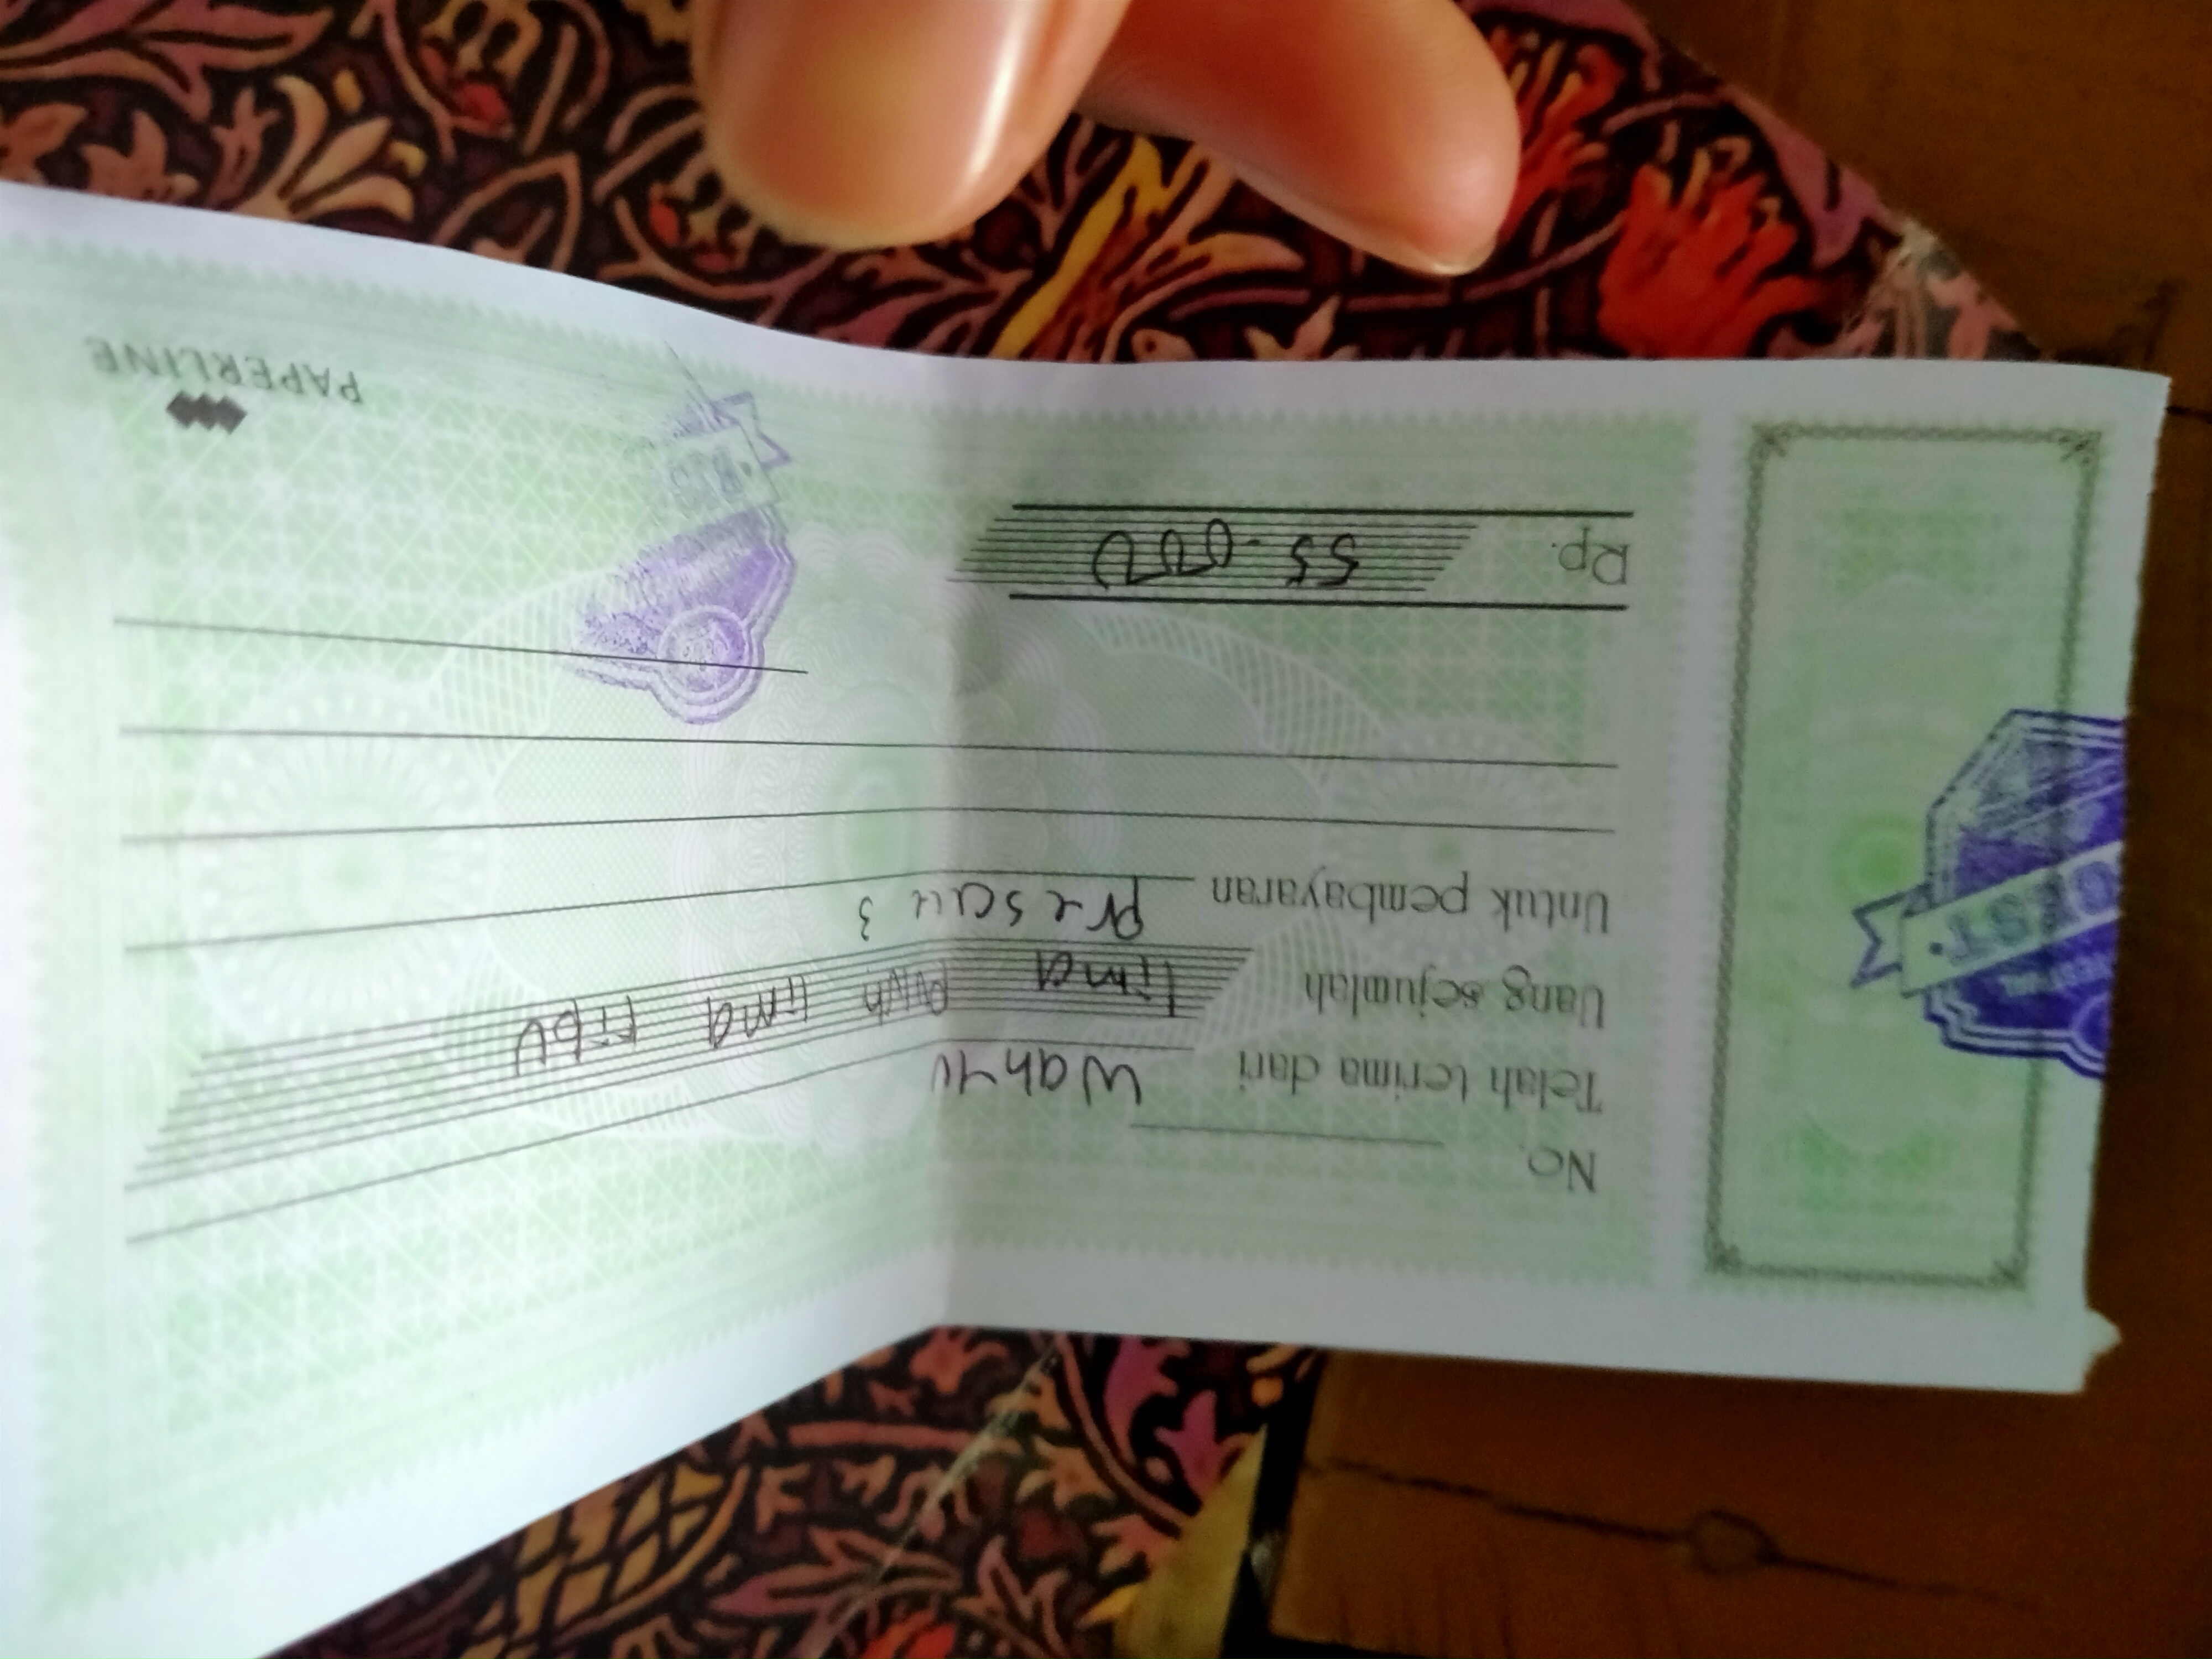 No.
Telah terima dari Wahyu
Uang sejumlah lima puluh lima ribu
Untuk pembayaran presale 3
Rp. 55.000
PAPERLINE